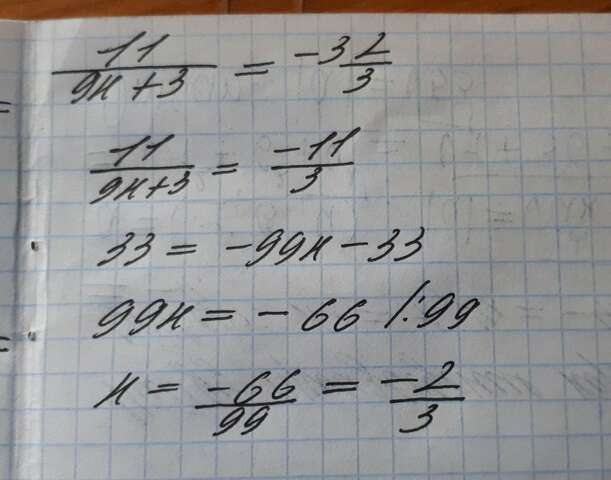 11/(9x+3) = -3 2/3
11/(9x+3) = -11/3
33 = -99x - 33
99x = -66 /:99
x = -66/99 = -2/3